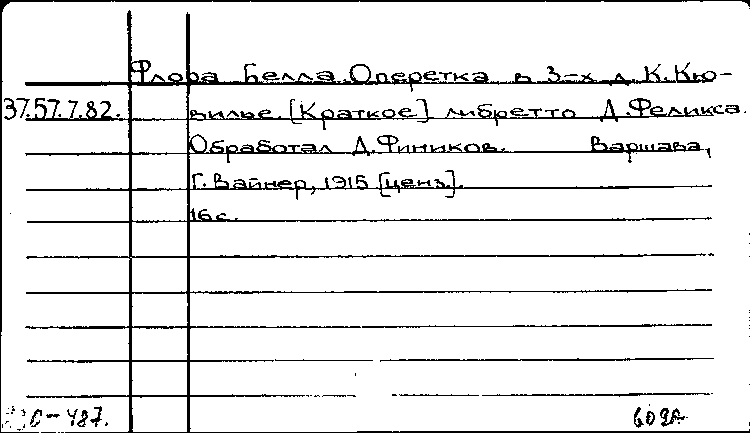 Флора Белла. Оперетка в 3-х д. К. Кю-
37.57.7.82. вилье. [Краткое] либретто Д. Феликса.
Обработал Д. Фиников. Варшава,
Г. Вайнер, 1915 [ценз.].
16 с.
С-487.